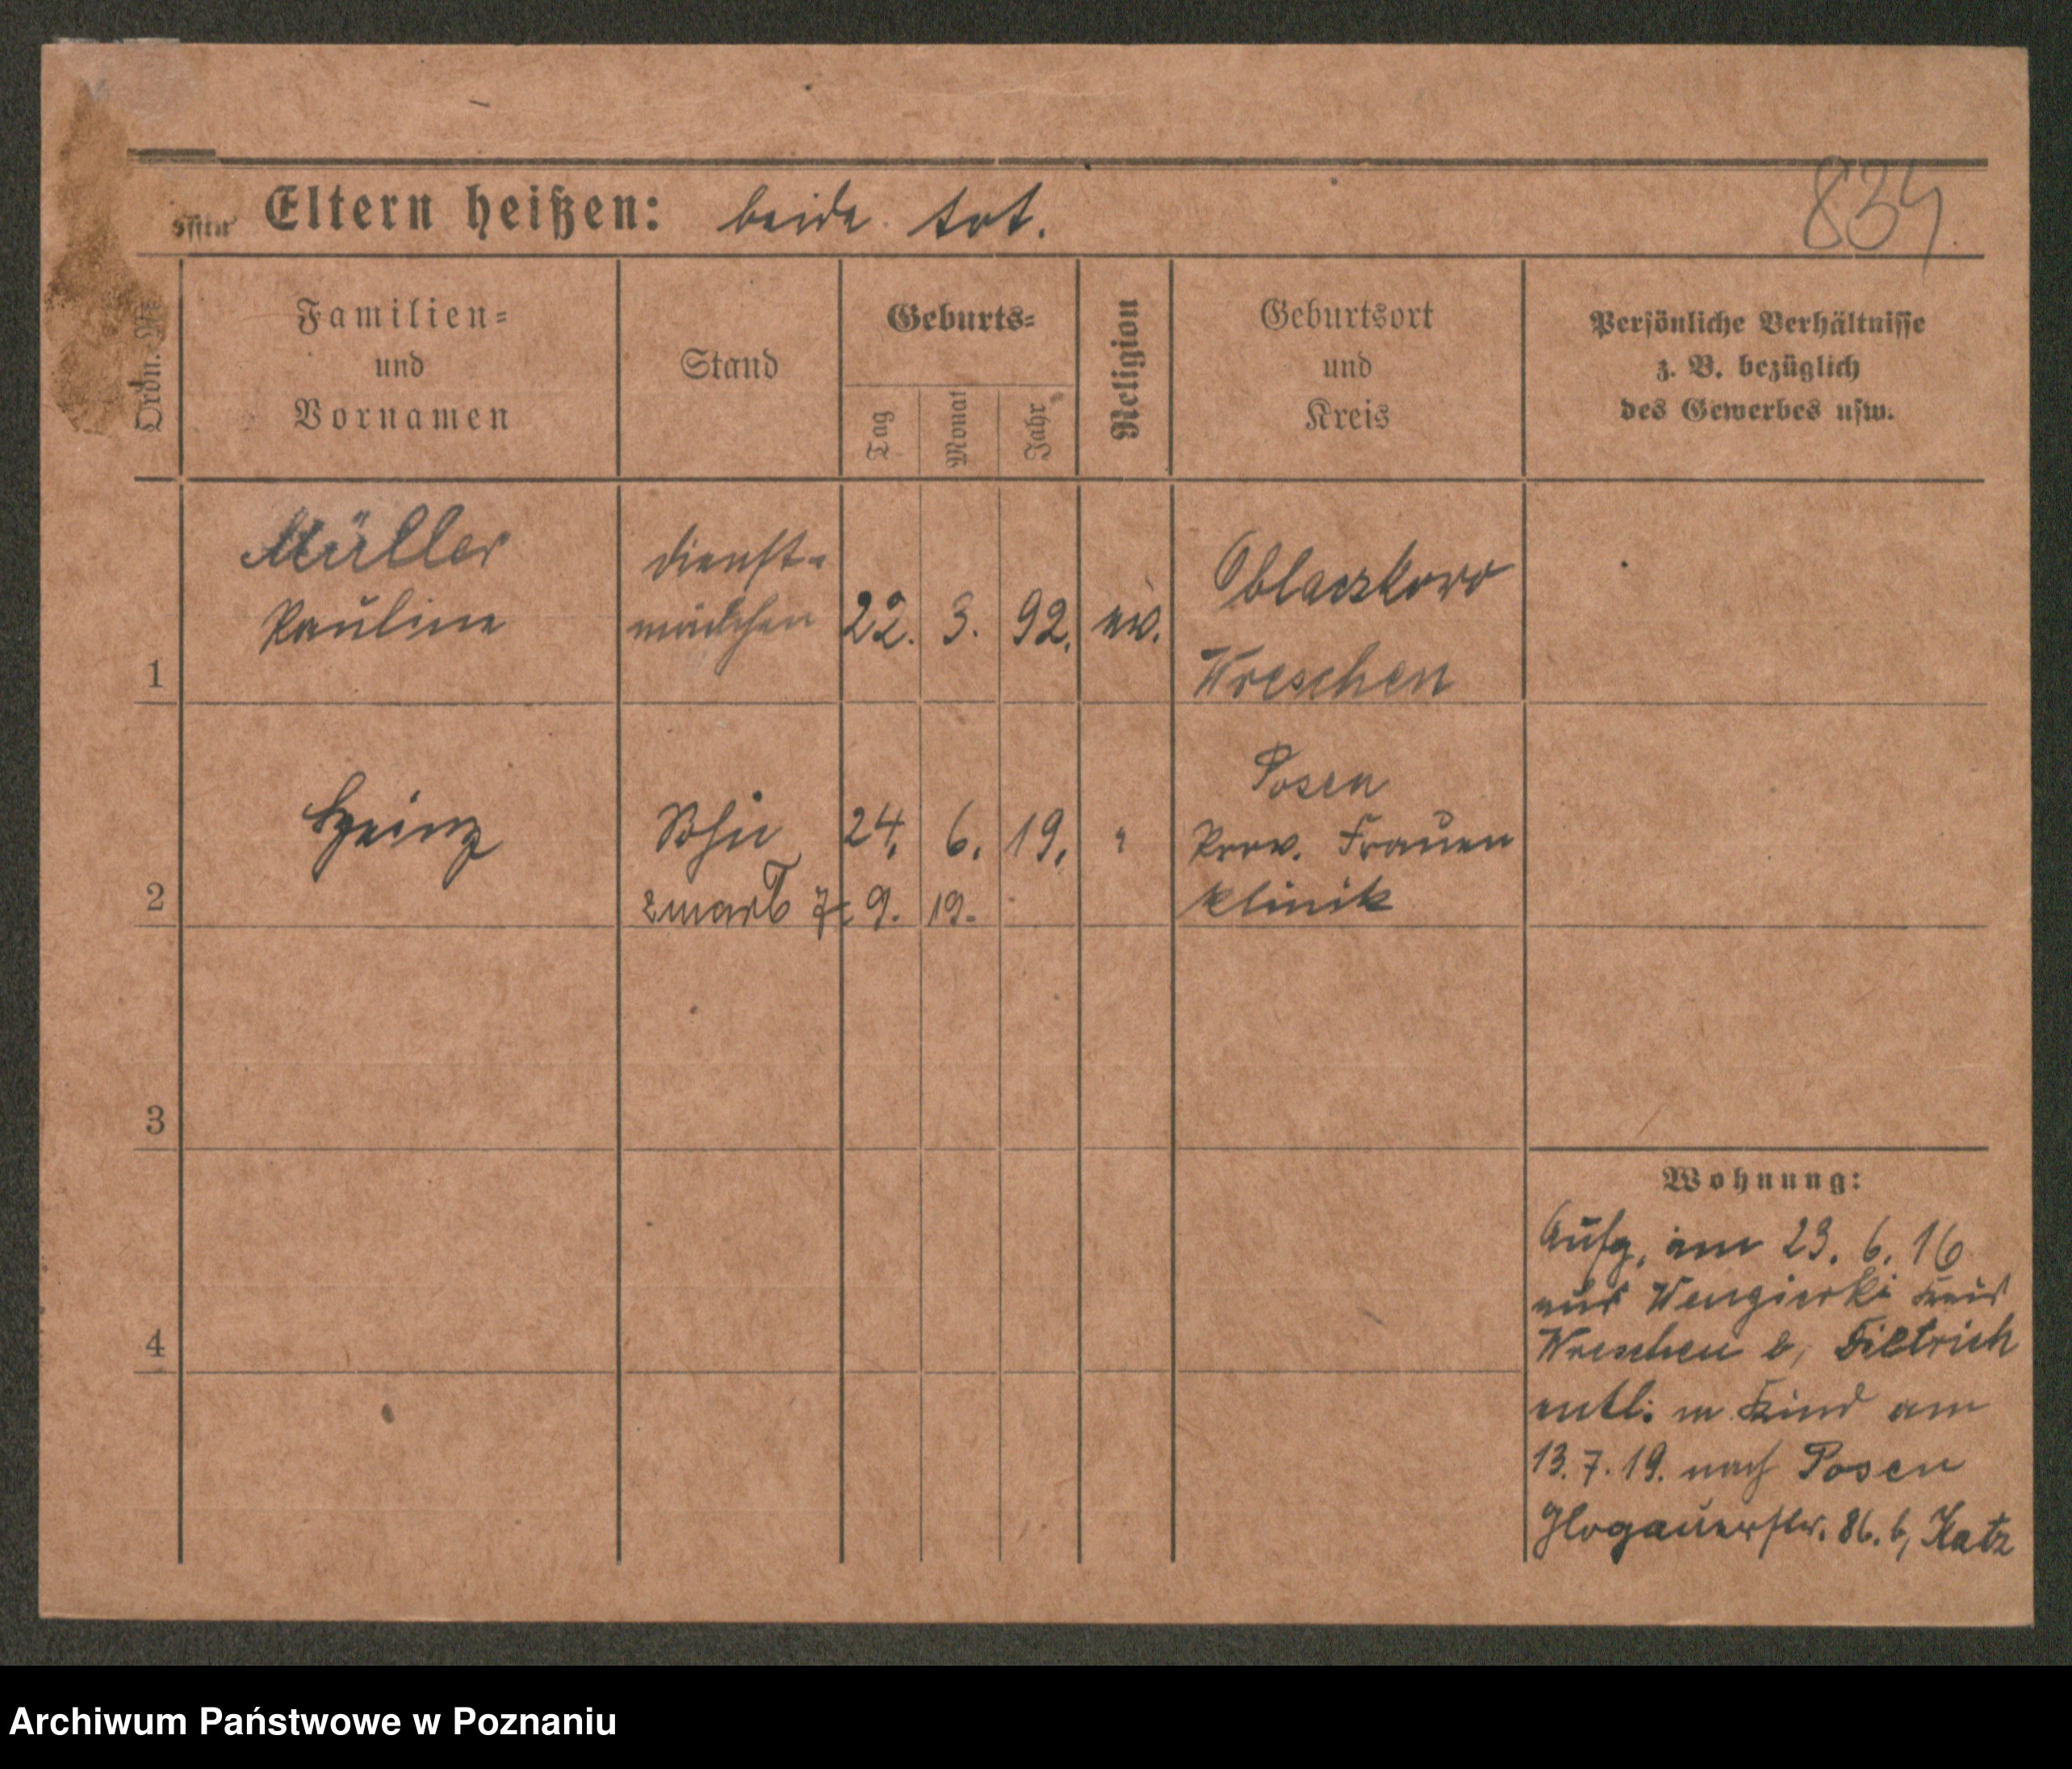 Eltern heißen: beide tot.
834
Ordn. №
Familien-
und
Vornamen
Stand
Geburts-
Tag
Monat
Jahr
Religion
Geburtsort
und
Kreis
Persönliche Verhältnisse
z. B. bezüglich
des Gewerbes usw.
1
Müller
Pauline
Dienst-
mädchen
22. 3. 92. ev.
Oblaczkowo
Wreschen
2
Heinz
Sohn
24. 6. 19. "
zmarł 7. 9. 19.
Posen
Prov. Frauen
klinik
3
4
Wohnung:
Aufg. am 23. 6. 16
aus Wengierki Kreis
Wreschen b,
entl: m Kind am
13. 7. 19. nach Posen
Glogauerstr. 86. b, Katz
Archiwum Państwowe w Poznaniu